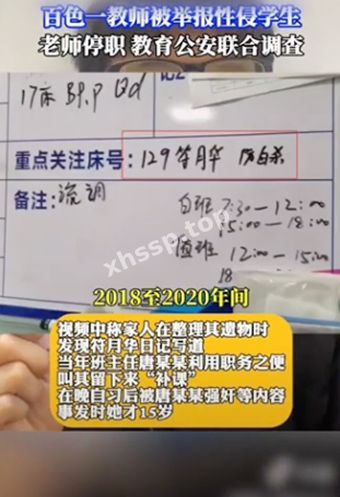 百色一教师被举报性侵学生
老师停职 教育公安联合调查
17床 BP.P Qd
重点关注床号: 129符月华 防自杀
备注: 流调
白班 7:30—12:00
15:00—18:00
值班 12:00—15:00
18
xhssp.top
2018至2020年间
视频中称家人在整理其遗物时
发现符月华日记写道
当年班主任唐某某利用职务之便
叫其留下来“补课”
在晚自习后被唐某某强奸等内容
事发时她才15岁